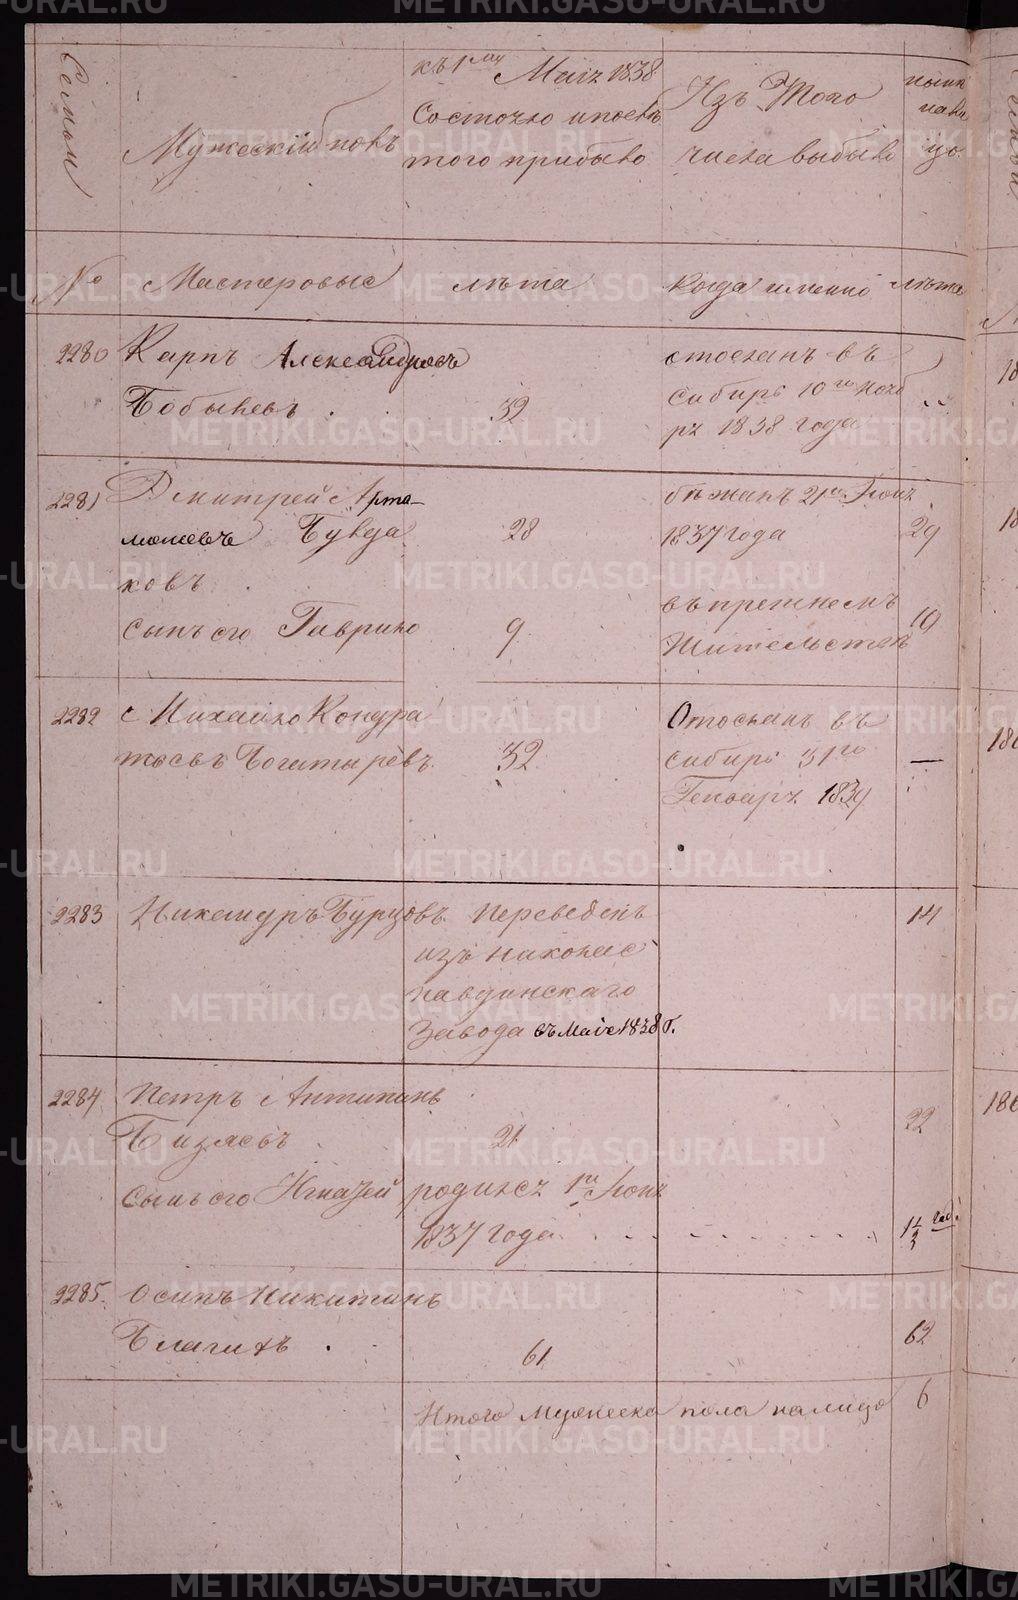 Семьи
Мужескій полъ
къ 1му Маія 1838
Состояло и после
того прибыло
Изъ Того
числа выбыло
ныне
на ли
цо
№
Мастеровые
лѣта
Когда именно
лѣта
2280 Карпъ Александровъ
Бобылевъ . 32
отосланъ въ
Сибирь 10го Нояб
ря 1838 года
2281 Дмитрей Арта-
моновъ Бувда
ковъ
28
бѣжалъ 21го Іюня
1837 года
29
сынъ его Гаврило 9
въ прежнемъ
жительстве
10
2282 Михайло Кондра
тьевъ Богатыревъ 32
Отосланъ въ
Сибирь 31го
Генваря 1839
—
2283 Никандръ Бурцовъ
Переведенъ
изъ Николае
павдинскаго
Завода въ Маіе 1838 г.
14
2284 Петръ Антипинъ
Бизяевъ . 21
22
сынъ его Игнатей родился 1го Іюня
1837 года
1 1/2 год.
2285 Осипъ Никитинъ
Благихъ . 61
62
Итого Мужеска пола налицо 6
METRIKI.GASO-URAL.RU